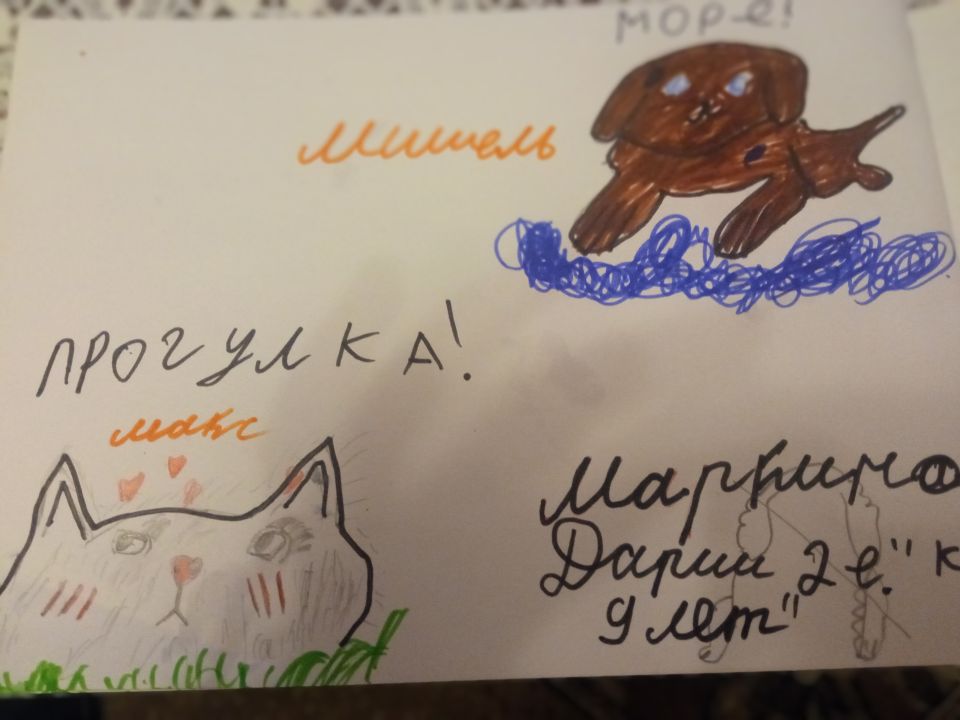 МОРЕ!
Мишель
ПРОГУЛКА!
макс
Маркина
Дарии 2 "е" к
9 лет"